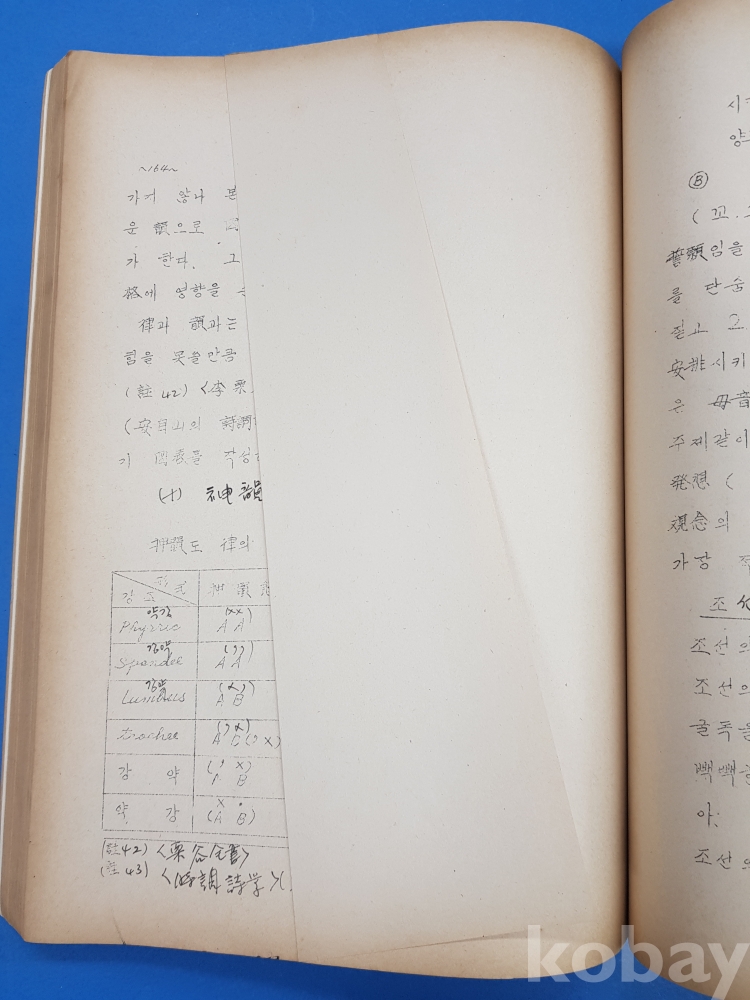 ~164~
가거 않나 본
운 韻으로
가 한다. 그
格에 영향을
律과 韻과는
힘을 못쓸만큼
(註 42) <李栗
(安自山의 時調
기 圖表를 작성
(十) 神韻
押韻도 律의
강조 형식 押韻
약강
Phyrric (xx) A A
강약
Spondee (,,) A A
강약
Lumbus (x,) A B
trochee (,x) A C (,x)
강 약 (, x) A B
약 강 (A B)
(註42) <栗谷全書>
(註43) <時調詩学>(
시
양
Ⓑ
(꼬.
韻임을
를 단숨
짚고 그
安排시키
은 母音
주제같이
発想 (
観念의
가장
조선
조선의
조선의
굴독을
빽빽을
아:
조선의
kobay